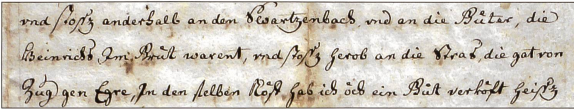 vnd stosst anderhalb an den Swartzenbach, vnd an die Büter, die
Heinrichs Am Brüt warent, vnd stosst herob an die Stras, die gat von
Zug gen Egre, In den selben Köff hab ich öch ein Büt verköfft heisst